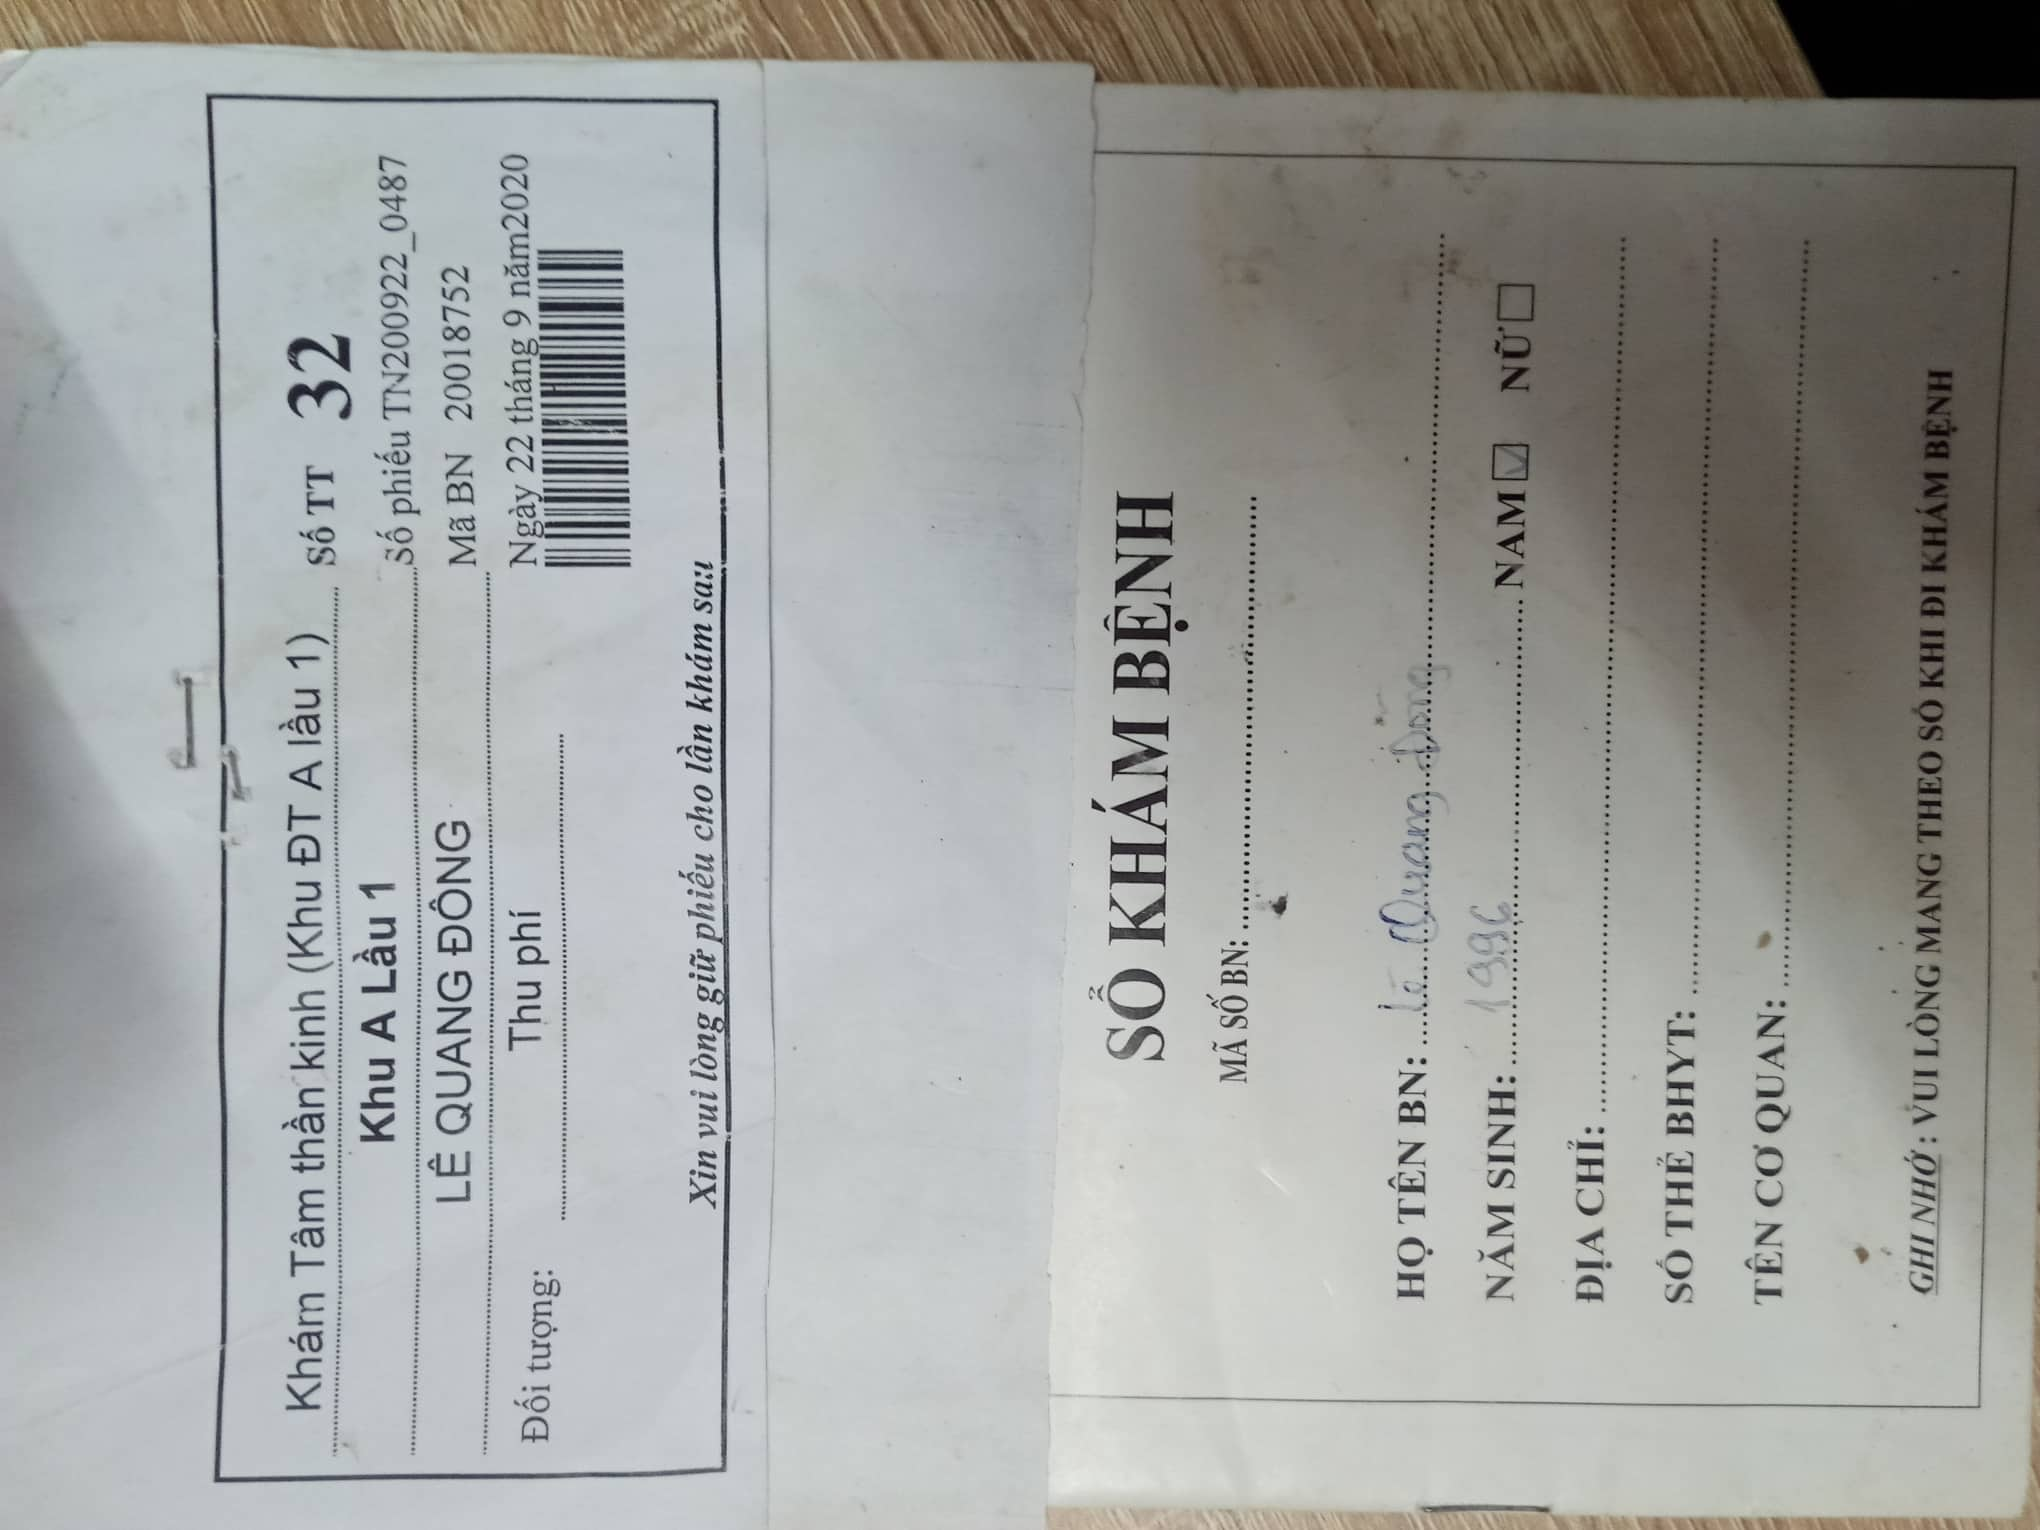 Khám Tâm thần kinh (Khu ĐT A lầu 1) Số TT 32
Khu A Lầu 1 Số phiếu TN200922_0487
LÊ QUANG ĐÔNG Mã BN 20018752
Đối tượng: Thu phí Ngày 22 tháng 9 năm2020
Xin vui lòng giữ phiếu cho lần khám sau
SỔ KHÁM BỆNH
MÃ SỐ BN:
HỌ TÊN BN: Lê Quang Đông
NĂM SINH: 1996 NAM ☑ NỮ ☐
ĐỊA CHỈ:
SỐ THẺ BHYT:
TÊN CƠ QUAN:
GHI NHỚ : VUI LÒNG MANG THEO SỔ KHI ĐI KHÁM BỆNH